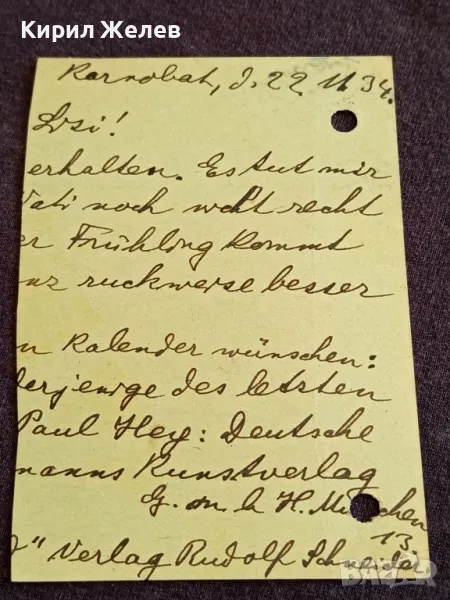 Кирил Желев
Karnobat, d. 22 II 34.
Lisi!
erhalten. Es tut mir
Vati noch nicht recht
er Frühling kommt
nz ruckweise besser
n Kalender wünschen:
derjenige des letzten
Paul Hey: Deutsche
manns Kunstverlag
G. m b H. München
13
" Verlag Rudolf Schneider
BAZAR